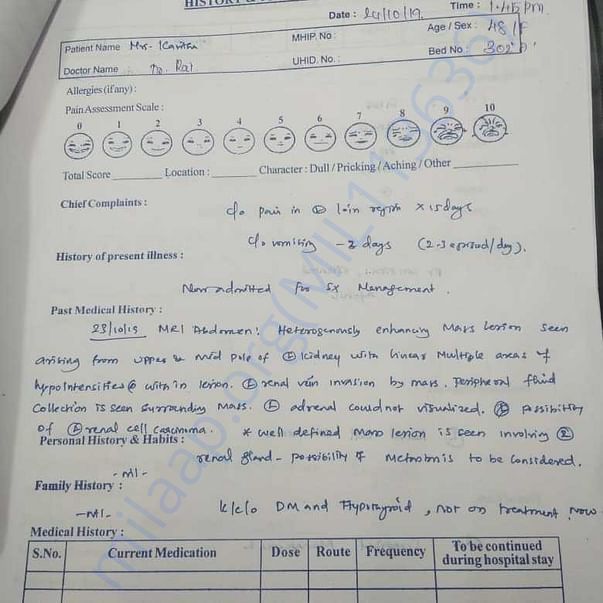 HISTORY &
Date : 24/10/19 Time : 1:45 pm
Patient Name Mrs. Kavitha MHIP. No : Age / Sex : 48 / F
Doctor Name : Dr. Raj UHID. No. : Bed No : 302
Allergies (if any) :
Pain Assessment Scale :
0 1 2 3 4 5 6 7 8 9 10
Total Score ________ Location : ________ Character : Dull / Pricking / Aching / Other ________
Chief Complaints :
c/o pain in loin region x 15 days
c/o vomiting - 2 days (2-3 episod/day).
History of present illness :
Now admitted for Sx Management.
Past Medical History :
23/10/19 MRI Abdomen: Heterogenously enhancing Mass lesion seen
arising from upper & mid pole of (L) kidney with linear multiple areas of
hypointensities with in lesion. (L) renal vein invasion by mass. Peripheral fluid
collection is seen surrounding mass. (L) adrenal could not visualized. possibility
of (L) renal cell carcinoma. * well defined mass lesion is seen involving
Personal History & Habits :
renal gland - possibility of to be considered.
-Nil-
Family History :
k/c/o DM and Hypothyroid, not on treatment now
-Nil-
Medical History :
S.No. Current Medication Dose Route Frequency To be continued during hospital stay
milaap.org(MIL_